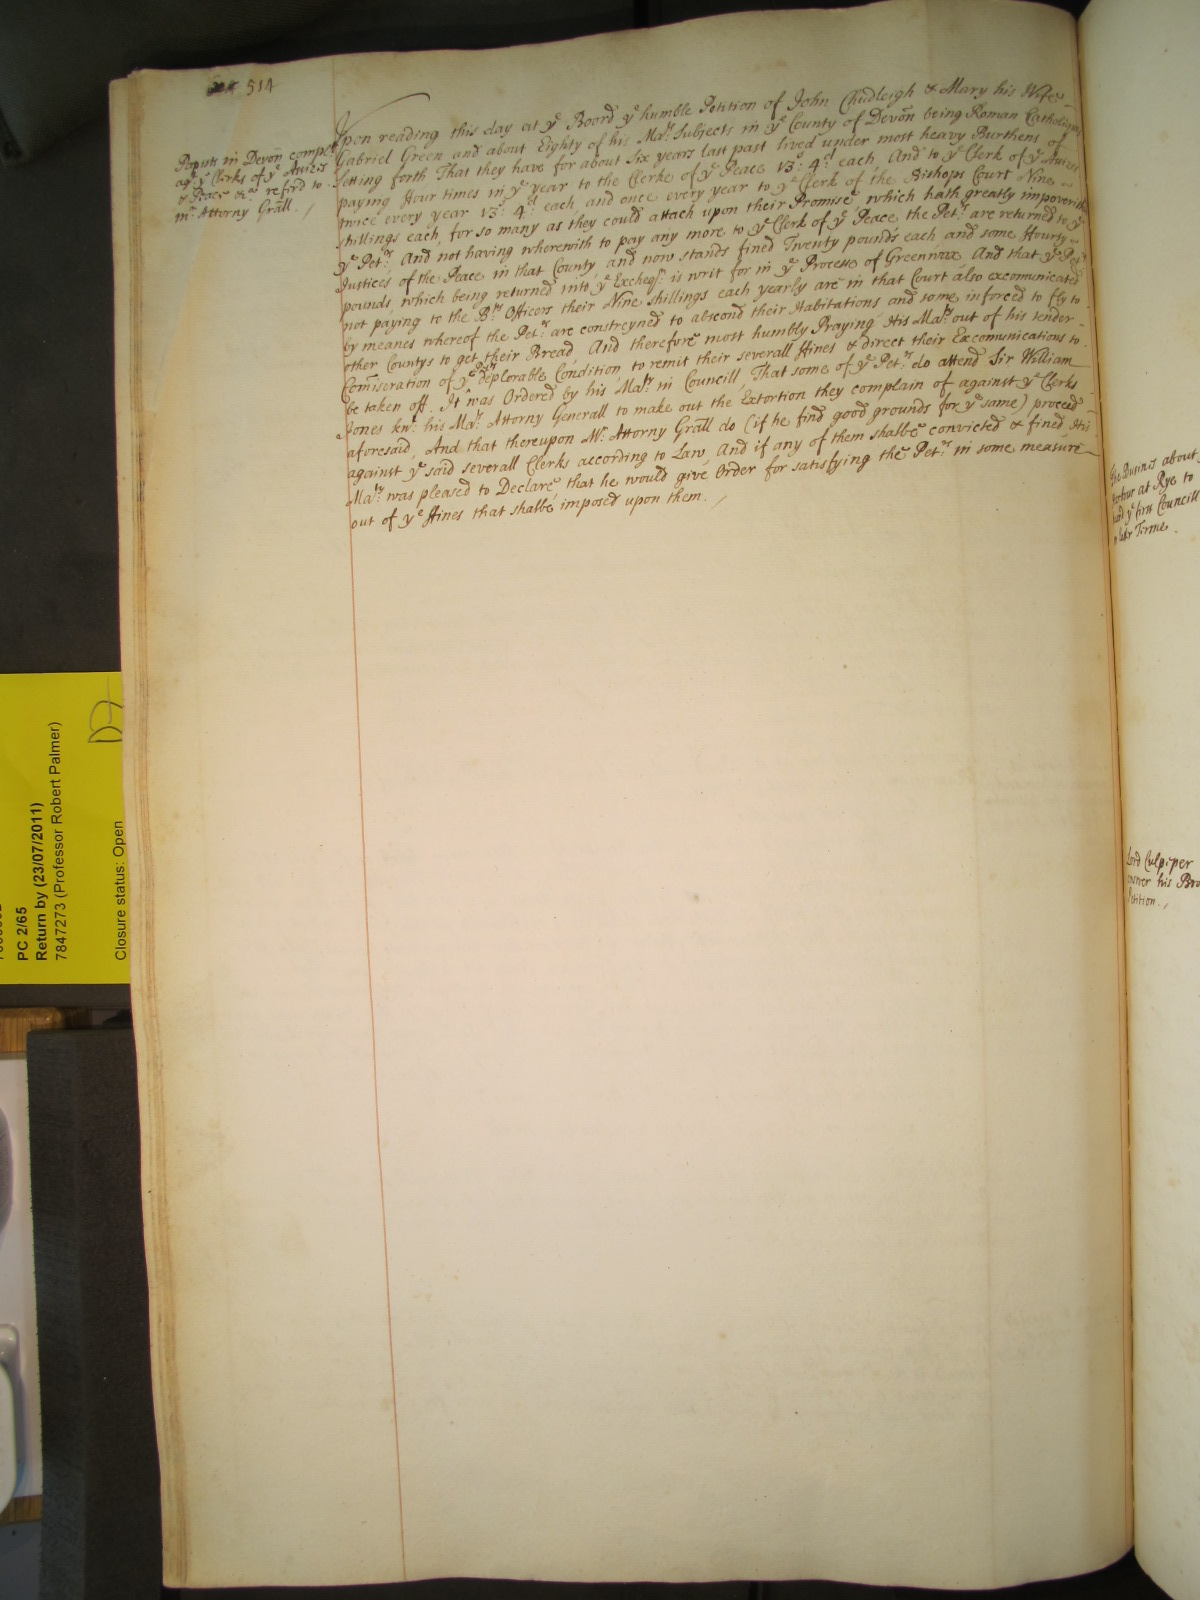 514
Papists in Devon complt
agt ye Clerks of ye Assizes
& Peace &ca referd to
mr Attorny Grāll.
Upon reading this day at ye Boord ye humble Petition of John Chudleigh & Mary his Wife
Gabriel Green and about Eighty of his Mats Subjects in ye County of Devon being Roman Catholiques
Setting forth That they have for about Six years last past lived under most heavy Burthens of
paying Hour times in ye year to the Clerke of ye Peace 13s: 4d each, And to ye Clerk of ye Assizes
twice every year 13s: 4d each and once every year to ye Clerk of the Bishops Court Nine
shillings each, for so many as they could attach upon their Promise, which hath greatly impoverisht
ye Petrs And not having wherewith to pay any more to ye Clerk of ye Peace, the Petrs are returned to ye
Justices of the Peace in that County, and now stands fined Twenty pounds each, and some Hourty
pounds, which being returned into ye Excheqr is writ for in ye Process of Greenwax And that ye Petrs
not paying to the Bps Officers their Nine shillings each yearly are in that Court also excomunicated
by meanes whereof the Petrs are constreyned to abscond their Habitations and some inforced to fly to
other Countys to get their Bread, And therefore most humbly Praying His Maty out of his tender
Comiseration of ye Petrs deplorable Condition to remit their severall Hines & direct their Excomunications to
be taken off. It was Ordered by his Maty in Councill, That some of ye Petrs do attend Sir William
Jones knt. his Mats Attorny Generall to make out the Extortion they complain of against ye Clerks
aforesaid, And that thereupon Mr Attorny Grāll do (if he find good grounds for ye same) proceed
against ye said severall Clerks according to Law, And if any of them shalbe convicted & fined His
Maty was pleased to Declare, that he would give Order for satisfying the Petrs in some measure
out of ye Hines that shalbe imposed upon them.
Business about
at Rye to
ye first Councill
Terme.
Lord Culpeper
answer his Bro
Petition.
PC 2/65
Return by (23/07/2011)
7847273 (Professor Robert Palmer)
Closure status: Open